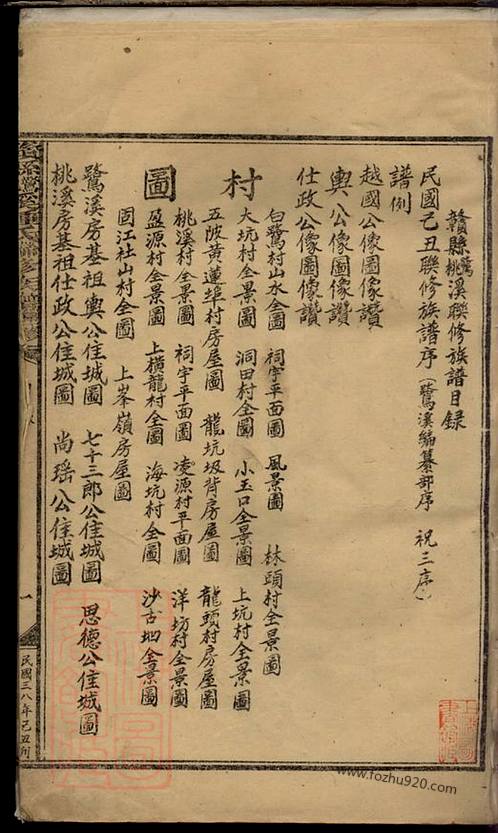 贛縣鷺桃溪聯修族譜目录
民國己丑聯修族譜序（鷺溪編纂部序　祝三序）
譜例
越國公像圖像讚
輿公像圖像讚
仕政公像圖像讚
村圖
白鷺村山水全圖　祠宇平面圖　風景圖　林頭村全景圖
大坑村全景圖　洞田村全圖　小玉口全景圖　上坑村全圖
五陂黄蓮埠村房屋圖　龍坑圾背房屋圖　龍頭村房屋圖
桃溪村全景圖　祠宇平面圖　凌源村平面圖　洋坊村全景圖
盈源村全景圖　上橫龍村全圖　海坑村全圖　沙古坳全景圖
固江社山村全圖　上峯嶺房屋圖
鷺溪房基祖輿公住城圖　七十三郎公住城圖　思德公住城圖
桃溪房基祖仕政公住城圖　尚瑶公住城圖
一
民國三八年己丑刊
www.fozhu920.com